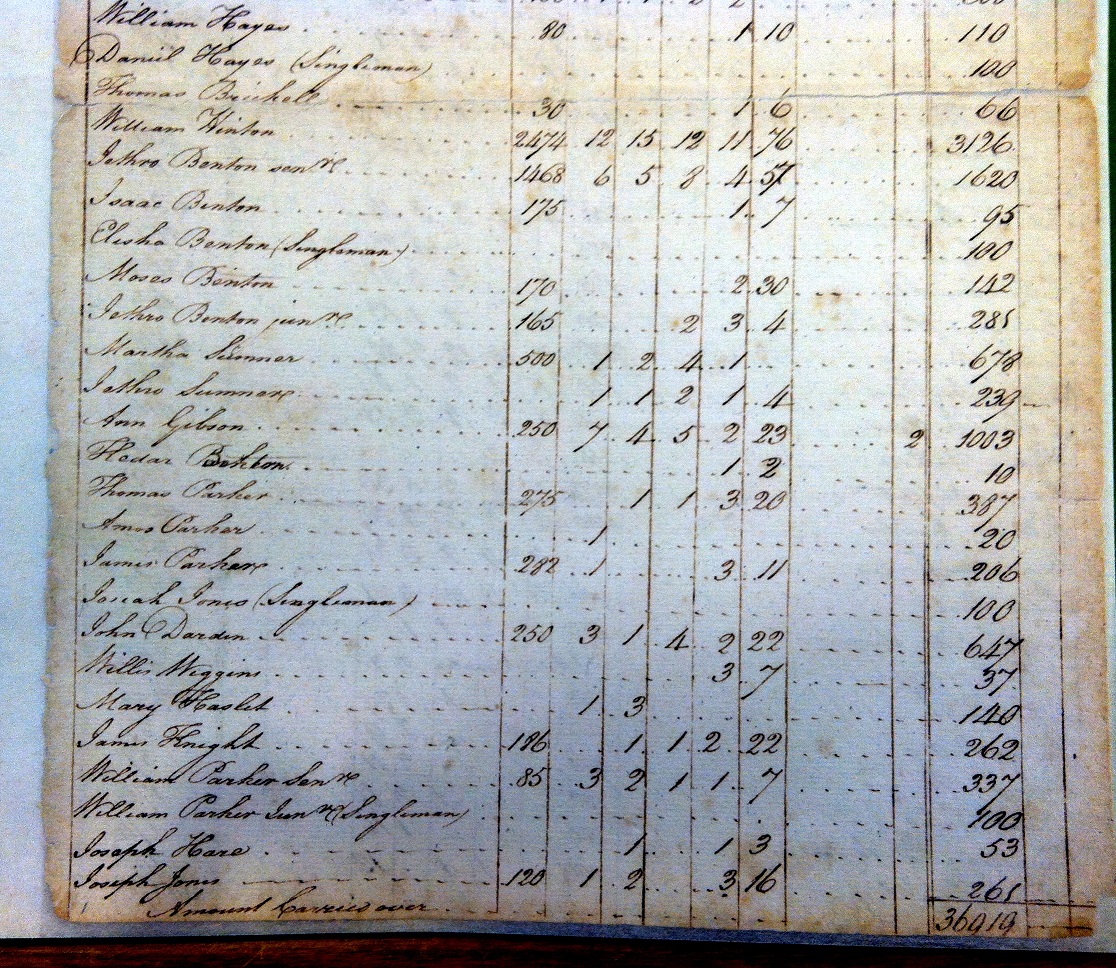 William Hayes 80 1 10 110
Daniel Hayes (Singleman) 100
Thomas Brickell 30 1 6 66
William Hinton 2474 12 15 12 11 76 3126
Jethro Benton senre 1468 6 5 8 4 57 1620
Isaac Benton 175 1 7 95
Elisha Benton (Singleman) 100
Moses Benton 170 2 30 142
Jethro Benton junre 165 2 3 4 281
Martha Sumner 500 1 2 4 1 678
Jethro Sumner 1 1 2 1 4 239
Ann Gibson 250 7 4 5 2 23 2 1003
1 2 10
Thomas Parker 275 1 1 3 20 387
Amos Parker 1 20
James Parker 282 1 3 11 206
Josiah Jones (Singleman) 100
John Darden 250 3 1 4 2 22 647
Willis Wiggins 3 7 37
Mary Haslet 1 3 140
James Knight 186 1 1 2 22 262
William Parker Senre 85 3 2 1 1 7 337
William Parker Junre (Singleman) 100
Joseph Hare 1 1 3 53
Joseph Jones 120 1 2 3 16 261
Amount Carried over 36919